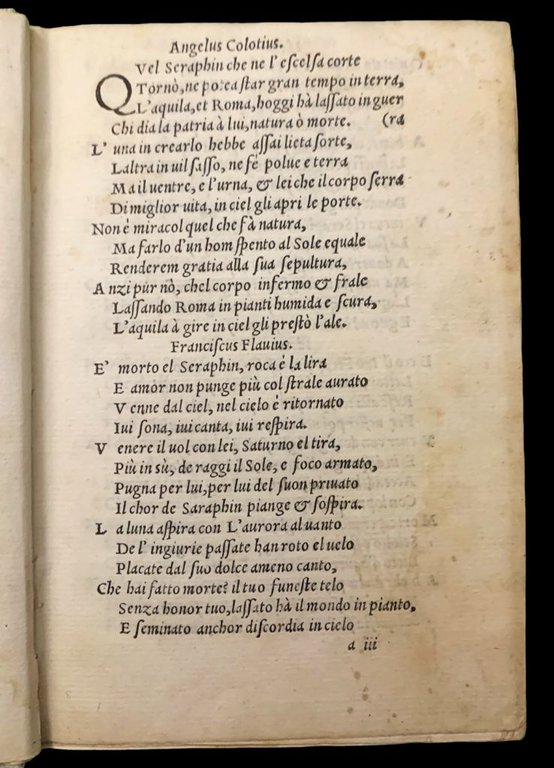 Angelus Colotius.
QVel Seraphin che ne l' eſcelſa corte
Tornò, ne potea ſtar gran tempo in terra,
L'aquila, et Roma, hoggi hà laſſato in guer
Chi dia la patria à lui, natura ò morte. (ra
L' una in crearlo hebbe aſſai lieta ſorte,
Laltra in uil ſaſſo, ne fé polue e terra
Ma il uentre, e l'urna, & lei che il corpo ſerra
Di miglior uita, in ciel gli apri le porte.
Non é miracol quel che fà natura,
Ma farlo d'un hom ſpento al Sole equale
Renderem gratia alla ſua ſepultura,
Anzi pur nò, chel corpo infermo & frale
Laſſando Roma in pianti humida e ſcura,
L'aquila à gire in ciel gli preſtò l'ale.
Franciſcus Flauius.
E' morto el Seraphin, roca é la lira
E amor non punge più col ſtrale aurato
Venne dal ciel, nel cielo é ritornato
Iui ſona, iui canta, iui reſpira.
Venere il uol con lei, Saturno el tira,
Più in sù, de raggi il Sole, e foco armato,
Pugna per lui, per lui del ſuon priuato
Il chor de Saraphin piange & ſoſpira.
La luna aſpira con L'aurora al uanto
De l' ingiurie paſſate han roto el uelo
Placate dal ſuo dolce ameno canto,
Che hai fatto morte? il tuo funeſte telo
Senza honor tuo, laſſato hà il mondo in pianto,
E ſeminato anchor diſcordia in cielo
a iii